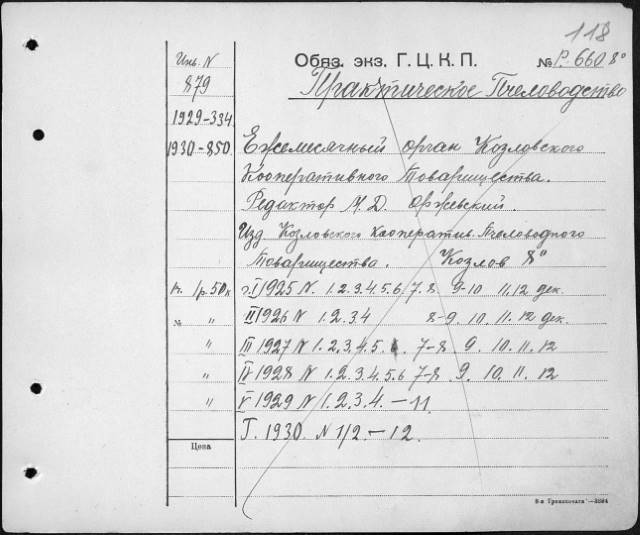 118
Инв. N Обяз. экз. Г. Ц. К. П. № Р. 660 8°
879 Практическое Пчеловодство
1929-334
1930-850 Ежемесячный орган Козловского
Кооперативного Товарищества.
Редактор М. Д. Оржевский.
Изд Козловского Кооператив. Пчеловодного
Товарищества. Козлов 8°
1р. 50к г. I 1925 N. 1. 2. 3. 4. 5. 6 7-8 9-10 11, 12 дек.
№ " II 1926 N 1. 2. 3 4 8-9. 10. 11. 12 дек
" III 1927 N 1. 2. 3. 4. 5. 6. 7-8 9. 10. 11. 12
" IV 1928 N 1. 2. 3. 4. 5. 6 7-8. 9. 10. 11. 12
" V 1929 N 1. 2. 3. 4. — 11.
Г. 1930. N 1/2. — 12.
Цена